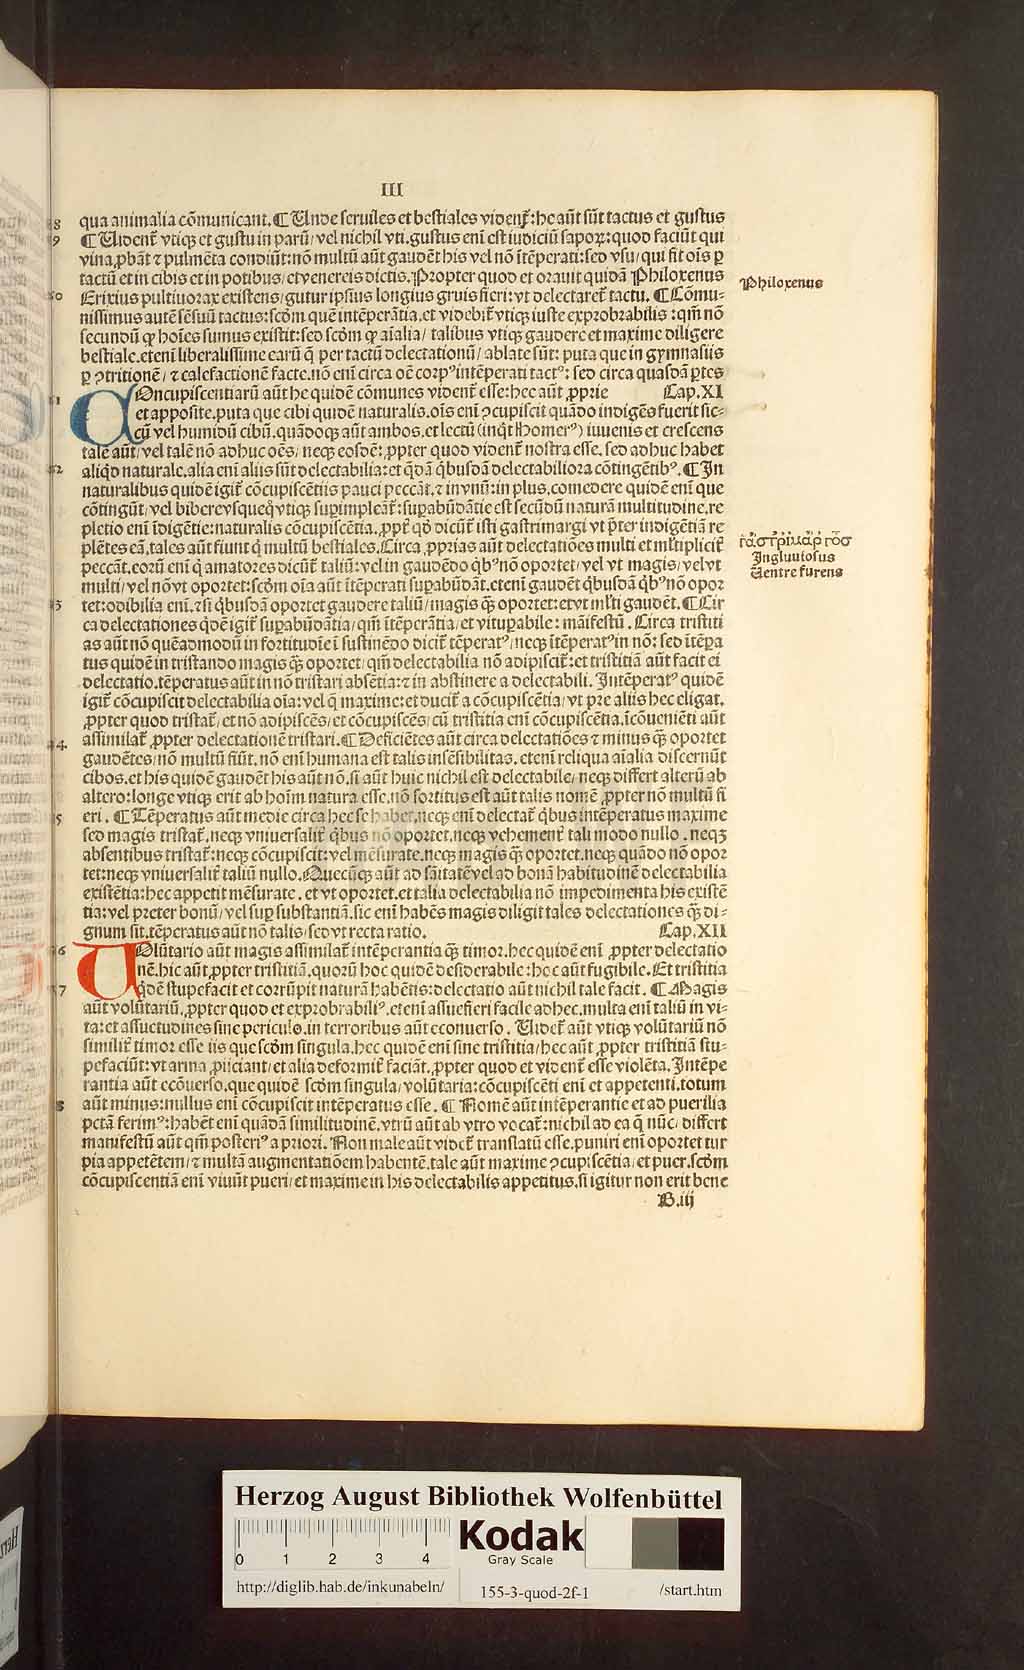 III
qua animalia cōmunicant. ¶ Unde seruiles et bestiales vident̄: he aūt sūt tactus et gustus
¶ Uident̄ vtiqꝫ et gustu in parū/ vel nichil vti. gustus eni est iudiciū sapoꝝ: quod faciūt qui
vina ꝓbāt ⁊ pulmēta condiūt: nō multū aūt gaudēt his vel nō ītēperati: sed vsu/ qui fit oīs ꝑ
tactū et in cibis et in potibus/ et venereis dictis. Propter quod et orauit quidā Philoxenus
Erixius pultiuorax existens/ gutur ipsius longius gruis fieri: vt delectaret̄ tactu. ¶ Cōmu-
nissimus autē sēsuū tactus: scd̄m quē intēperātia. et videbit̄ vtiqꝫ iuste exprobrabilis: qm̄ nō
secundū ꝙ hoīes sumus existit: sed scd̄m ꝙ aīalia/ talibus vtiqꝫ gaudere et maxime diligere
bestiale. eteni liberalissime earū q̄ per tactū delectationū/ ablate sūt: puta que in gymnasiis
ꝑ ꝯtritionē/ ⁊ calefactionē facte. nō eni circa oē corpꝰ intēperati tactꝰ: sed circa quasdā ꝑtes
COncupiscentiarū aūt he quidē cōmunes vident̄ esse: hec aūt ꝓprie Cap. XI
et apposite. puta que cibi quidē naturalis. oīs eni ꝯcupiscit quādo indigēs fuerit sic-
cū vel humidū cibū. quādoqꝫ aūt ambos. et lectū (inq̄t Homerꝰ) iuuenis et crescens
tale aūt/ vel talē nō adhuc oēs/ neqꝫ eosdē: ꝓpter quod vident̄ nostra esse. sed adhuc habet
aliqd̄ naturale. alia eni aliis sūt delectabilia: et q̄dā q̄busdā delectabiliora cōtingētibꝰ. ¶ In
naturalibus quidē igit̄ cōcupiscētiis pauci peccāt. ⁊ in vnū: in plus. comedere quidē eni que
cōtingūt/ vel bibere vsquequo vtiqꝫ suꝑimpleāt̄: suꝑabūdātie est secūdū naturā multitudine. re
pletio eni īdigētie: naturalis cōcupiscētia. ꝓpt̄ qd̄ dicūt̄ isti gastrimargi vt p̄ter indigētiā re
plētes eā. tales aūt fiunt q̄ multū bestiales. Circa ꝓprias aūt delectatiōes multi et ml̄tiplicit̄
peccāt. eorū eni q̄ amatores dicūt̄ taliū: vel in gaudēdo q̄bꝰ nō oportet/ vel vt magis/ vel vt
multi/ vel nō vt oportet: scd̄m oīa aūt ītēperati suꝑabūdāt. eteni gaudēt q̄busdā q̄bꝰ nō opor
tet: odibilia eni. ⁊ si q̄busdā oportet gaudere taliū/ magis q̄ꝫ oportet: et vt ml̄ti gaudēt. ¶ Cir
ca delectationes q̄dē igit̄ suꝑabūdātia/ qm̄ ītēperātia/ et vituꝑabile: māifestū. Circa tristiti
as aūt nō quēadmodū in fortitudīe ī sustinēdo dicit̄ tēperatꝰ/ neqꝫ ītēperatꝰ in nō: sed ītēꝑa
tus quidē in tristando magis q̄ꝫ oportet/ qm̄ delectabilia nō adipiscit̄: et tristitiā aūt facit ei
delectatio. tēperatus aūt in nō tristari absētia: ⁊ in abstinere a delectabili. Intēperatꝰ quidē
igit̄ cōcupiscit delectabilia oīa: vel q̄ maxime: et ducit̄ a cōcupiscētia/ vt pre aliis hec eligat.
ꝓpter quod tristat̄/ et nō adipiscēs/ et cōcupiscēs/ cū tristitia eni cōcupiscētia. īcōueniēti aūt
assimilat̄ ꝓpter delectationē tristari. ¶ Deficiētes aūt circa delectatiōes ⁊ minus q̄ꝫ oportet
gaudētes/ nō multū fiūt. nō eni humana est talis insēsibilitas. eteni reliqua aīalia discernūt
cibos. et his quidē gaudēt his aūt nō. si aūt huic nichil est delectabile/ neqꝫ differt alterū ab
altero: longe vtiqꝫ erit ab hoīm natura esse. nō sortitus est aūt talis nomē ꝓpter nō multū fi
eri. ¶ Tēperatus aūt medie circa hec se habet. neqꝫ eni delectat̄ q̄bus intēperatus maxime
sed magis tristat̄. neqꝫ vniuersalit̄ q̄bus nō oportet. neqꝫ vehement̄ tali modo nullo. neqꝫ
absentibus tristat̄: neqꝫ cōcupiscit: vel mēsurate. neqꝫ magis q̄ꝫ oportet. neqꝫ quādo nō opor
tet: neqꝫ vniuersalit̄ taliū nullo. Quecūqꝫ aūt ad sāitatē vel ad bonā habitudinē delectabilia
existētia: hec appetit mēsurate. et vt oportet. et talia delectabilia nō impedimenta his existē
tia: vel preter bonū/ vel suꝑ substantiā. sic eni habēs magis diligit tales delectationes q̄ꝫ di-
gnum sit. tēperatus aūt nō talis/ sed vt recta ratio. Cap. XII
UOlūtario aūt magis assimilat̄ intēperantia q̄ꝫ timor. hec quidē eni ꝓpter delectatio
nē. hic aūt ꝓpter tristitiā. quorū hoc quidē desiderabile: hoc aūt fugibile. Et tristitia
q̄dē stupefacit et corrūpit naturā habētis: delectatio aūt nichil tale facit. ¶ Magis
aūt volūtariū. ꝓpter quod et exprobrabiliꝰ. eteni assuefieri facile ad hec. multa eni taliū in vi-
ta: et assuetudines sine periculo. in terroribus aūt econuerso. Uidet̄ aūt vtiqꝫ volūtariū nō
similit̄ timor esse iis que scd̄m singula. hec quidē eni sine tristitia/ hec aūt ꝓpter tristitiā stu-
pefaciūt: vt arma ꝓiiciant/ et alia deformit̄ faciāt. ꝓpter quod et vident̄ esse violēta. Intēpe
rantia aūt ecōuerso. que quidē scd̄m singula/ volūtaria: cōcupiscēti eni et appetenti. totum
aūt minus: nullus eni cōcupiscit intēperatus esse. ¶ Nomē aūt intēperantie et ad puerilia
pctā ferimꝰ: habēt eni quādā similitudinē. vtrū aūt ab vtro vocat̄: nichil ad ea q̄ nūc/ differt
manifestū aūt qm̄ posteriꝰ a priori. Non male aūt videt̄ translatū esse. puniri eni oportet tur
pia appetētem/ ⁊ multā augmentatiōem habentē. tale aūt maxime ꝯcupiscētia/ et puer. scd̄m
cōcupiscentiā eni viuūt pueri/ et maxime in his delectabilis appetitus. si igitur non erit bene
B.iij
Philoxenus
γαστριμαργος
Ingluuiosus
Uentre furens
8
9
50
51
52
53
54
55
56
57
58
Herzog August Bibliothek Wolfenbüttel
0 1 2 3 4
Kodak
Gray Scale
http://diglib.hab.de/inkunabeln/
155-3-quod-2f-1
/start.htm